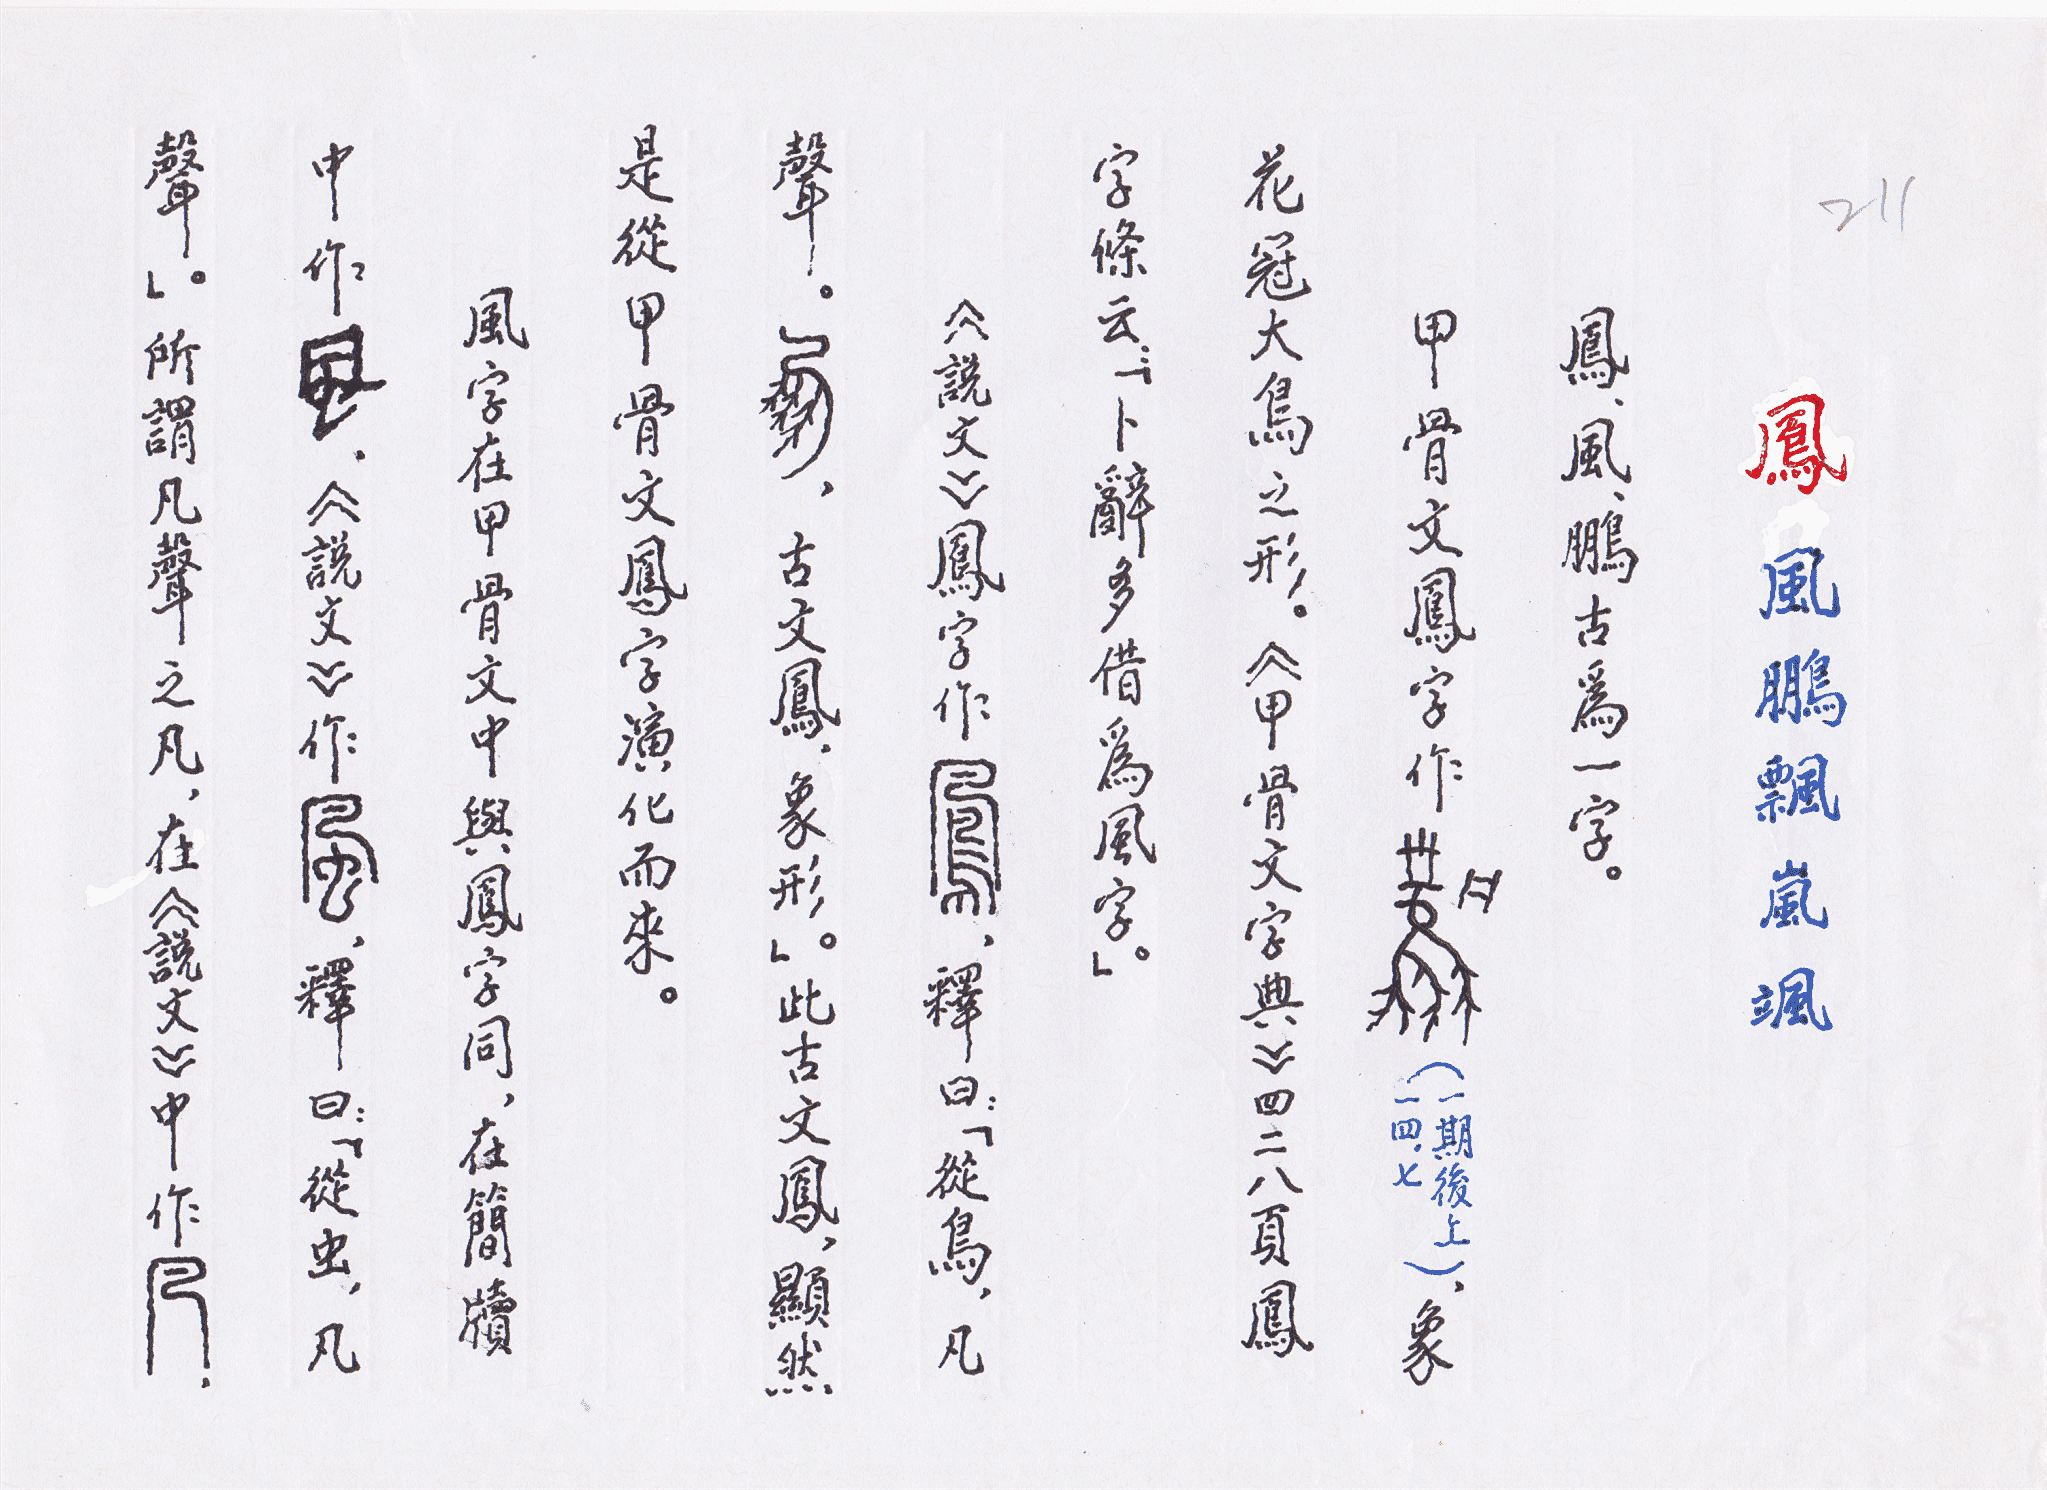 211
鳳風鵬飄嵐颯
鳳、風、鵬古爲一字。
甲骨文鳳字作（一期後上一四.七），象
花冠大鳥之形。《甲骨文字典》四二八頁鳳
字條云：「卜辭多借爲風字」。
《説文》鳳字作，釋曰：「從鳥，凡
聲。，古文鳳，象形。」此古文鳳，顯然
是從甲骨文鳳字演化而來。
風字在甲骨文中與鳳字同，在簡牘
中作，《説文》作，釋曰：「從虫，凡
聲」。所謂凡聲之凡，在《説文》中作，